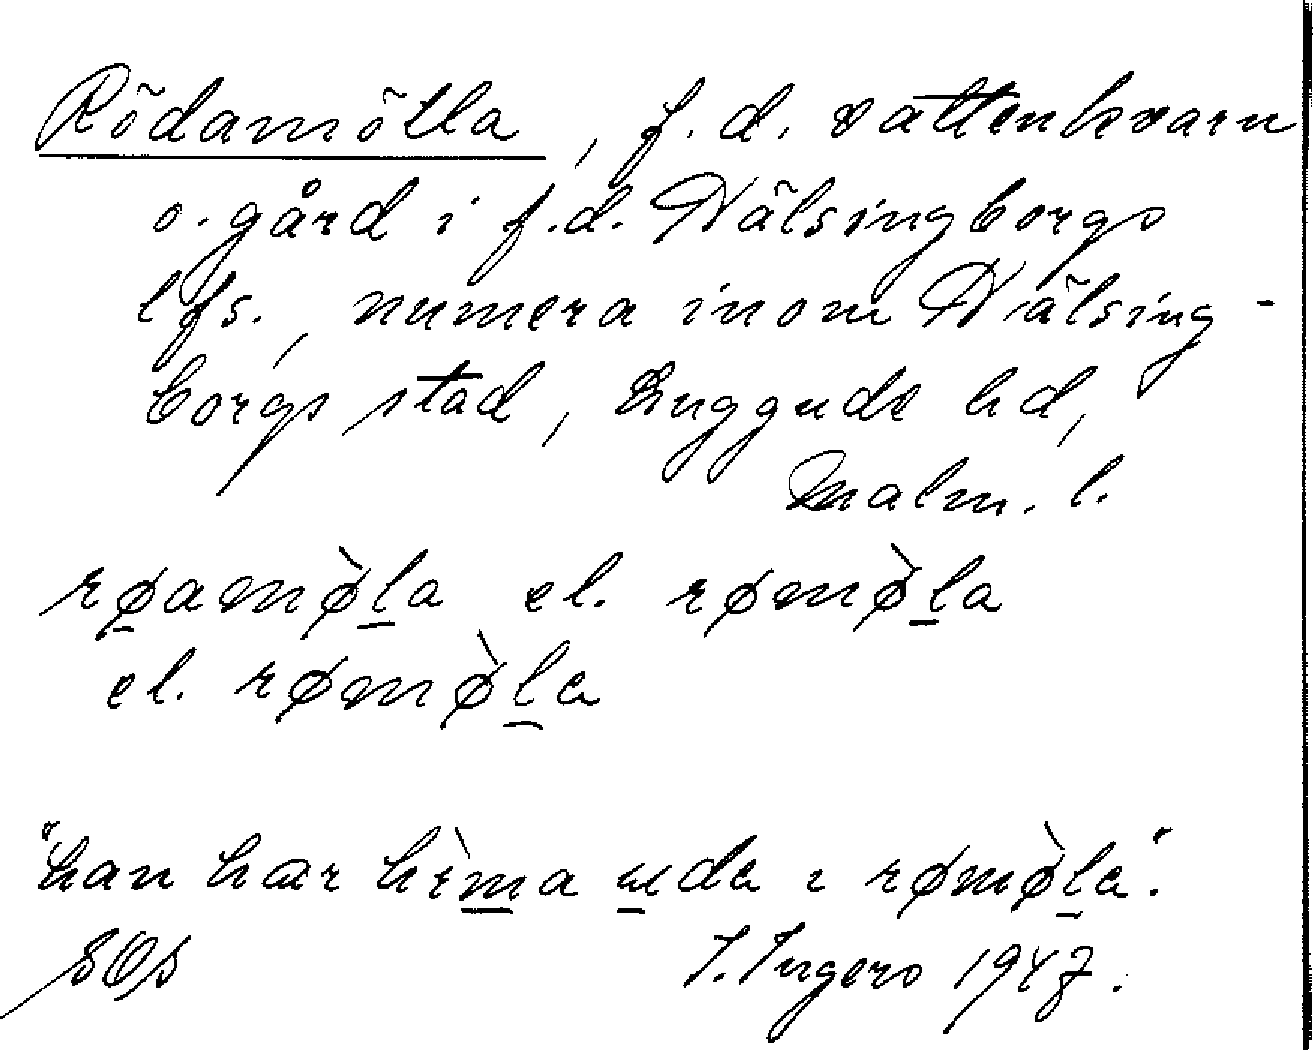 Rödamölla, f.d. vattenkvarn
o. gård i f.d. Hälsingborgs
lfs., numera inom Hälsing-
borgs stad, Luggude hd,
Malm. l.
røamø̀la el. rømø̀la
el. rømø̀la
"han har hèma uda ı rømø̀la".
SOs I. Ingers 1947.